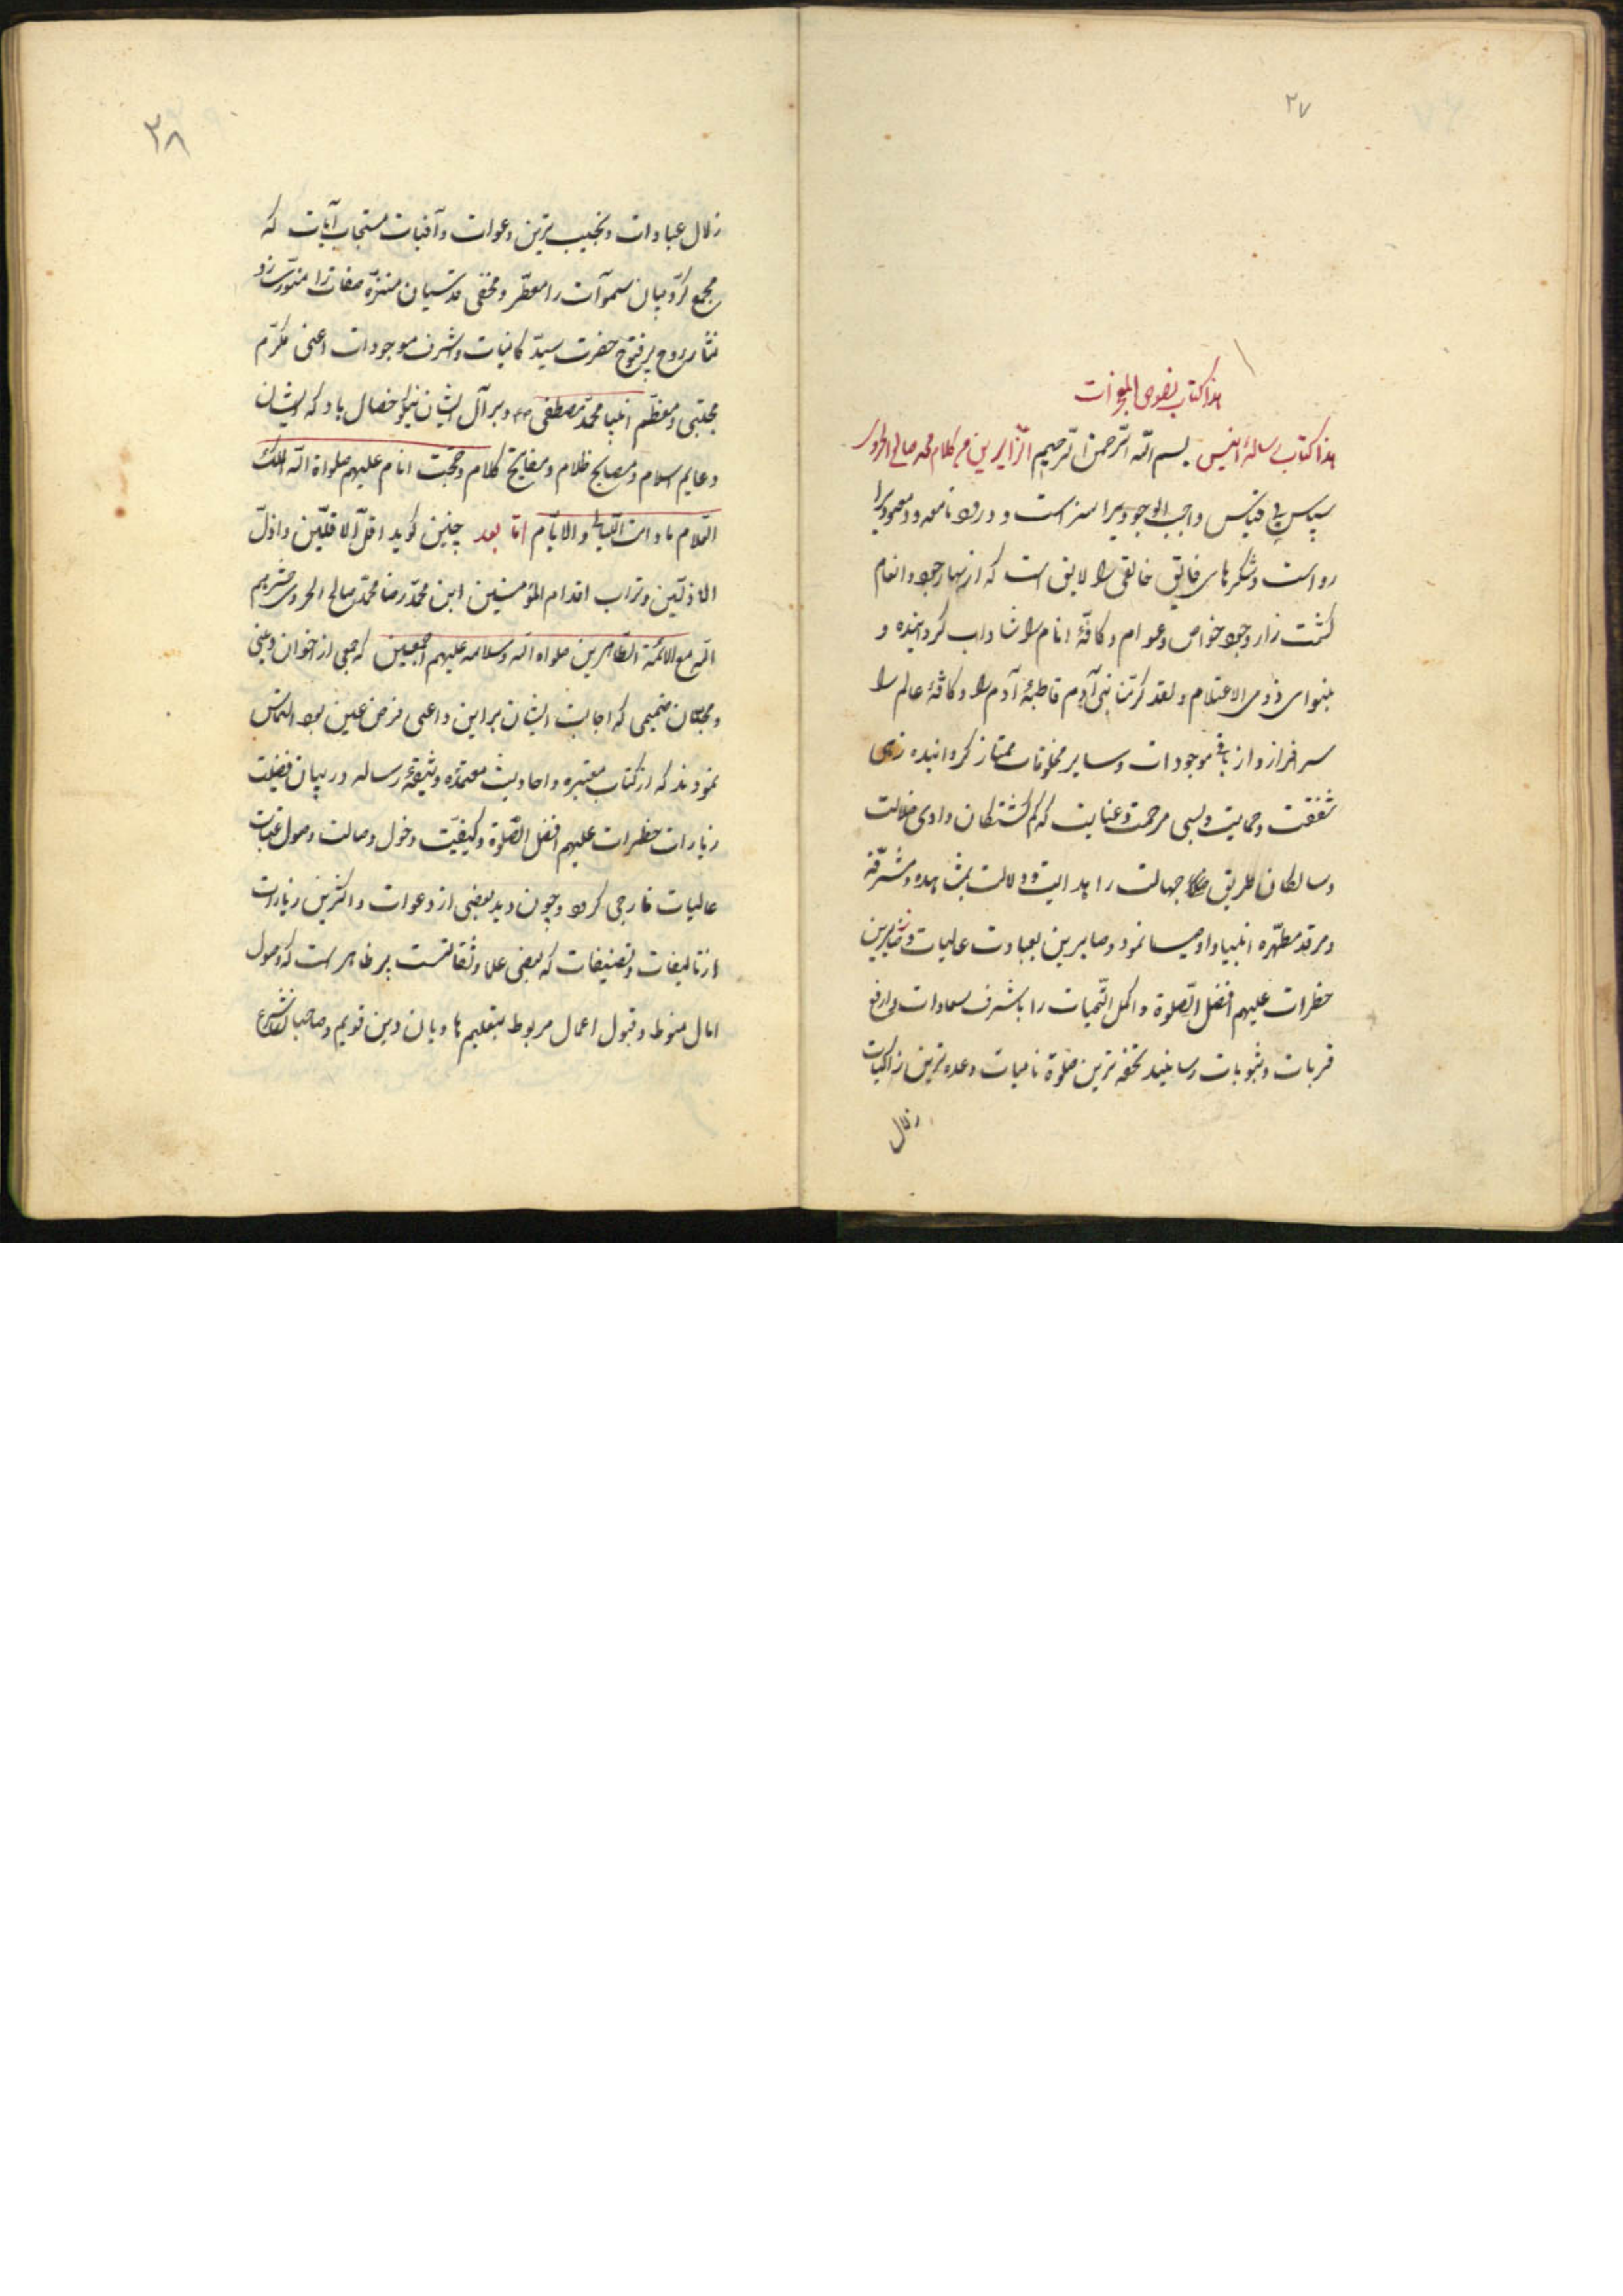 ۲۷
هذا کتاب
هذا کتاب رساله انیس بسم الله الرحمن الرحیم الزایرین من کلام محمد صالح الحروی
سپاس بی قیاس واجب الوجودیرا سزاست و درود نامعدود معبودیرا
رواست و شکرهای فایق خالقی را لایق است که از نهار جود و انعام
کشت زار وجود خواص و عوام و کافّهٔ انام را شاداب کردانیده و
بنوای ذوی الاعتلام و لقد کرّمنا بنی آدم قاطبهٔ آدم را و کافهٔ عالم را
سرافراز و از باقی موجودات و سایر مخلوقات ممتاز کردانیده زهی
شفقت و حمایت و بسی مرحمت و عنایت که کم کشتکان وادی ضلالت
و سالکان طریق جهالت را هدایت و دلالت بمشاهده مشرّفه
و مرقد مطهّره انبیا و اوصیا نمود و صابرین بعبادت عالیات و زایرین
حظرات علیهم افضل الصّلوة و اکمل التّحیات را باشرف سعادات و ارفع
قربات و مثوبات رسانید تحفه ترین صلوة نامیات و عمده ترین زاکیات
زلال
۲۸
زلال عبادات و نجیب ترین دعوات و آفیات مستجاب آیات که
مجمع کرّوبیان سموآت را معطّر و محفی قدسیان منزّه صفات را منوّر سازد
نثار روح پرفتوح حضرت سیّد کاینات و اشرف موجودات اعنی مکرّم
مجتبی و معظّم انبیا محمّد مصطفی ص و بر آل ایشان نیکو خصال باد که ایشان
دعایم اسلام و مصابیح ظلام و مفاتیح کلام و حجّت انام علیهم صلواة الله الملک
العّلام مادامت اللّیالی والایّام امّا بعد چنین کوید اقلّ الاقلّین و اذلّ
الاذلّین و تراب اقدام المؤمنین ابن محمّد رضا محمّد صالح الحروی حشرهم
الله مع الائمّة الطّاهرین صلواه الله و سلامه علیهم اجمعین که جمعی از اخوان دینی
و محبّان صمیمی که اجابت ایشان بر این داعی فرض عین بود التماس
نمودند که از کتاب معتبره و احادیث معتمده وثیقهٔ رساله در بیان فضیلت
زیارات حظرات علیهم افضل الصّلوة و کیفیّت دخول و صالت وصول عتبات
عالیات خارجی کرد و چون دید بعضی از دعوات و اکثرین زیارات
از تالیفات و تصنیفات که بعضی علما و ثقاتست پر ظاهر است که وصول
امال منوط و قبول اعمال مربوط بتعلیم هادیان دین قویم و صاحبان شرع